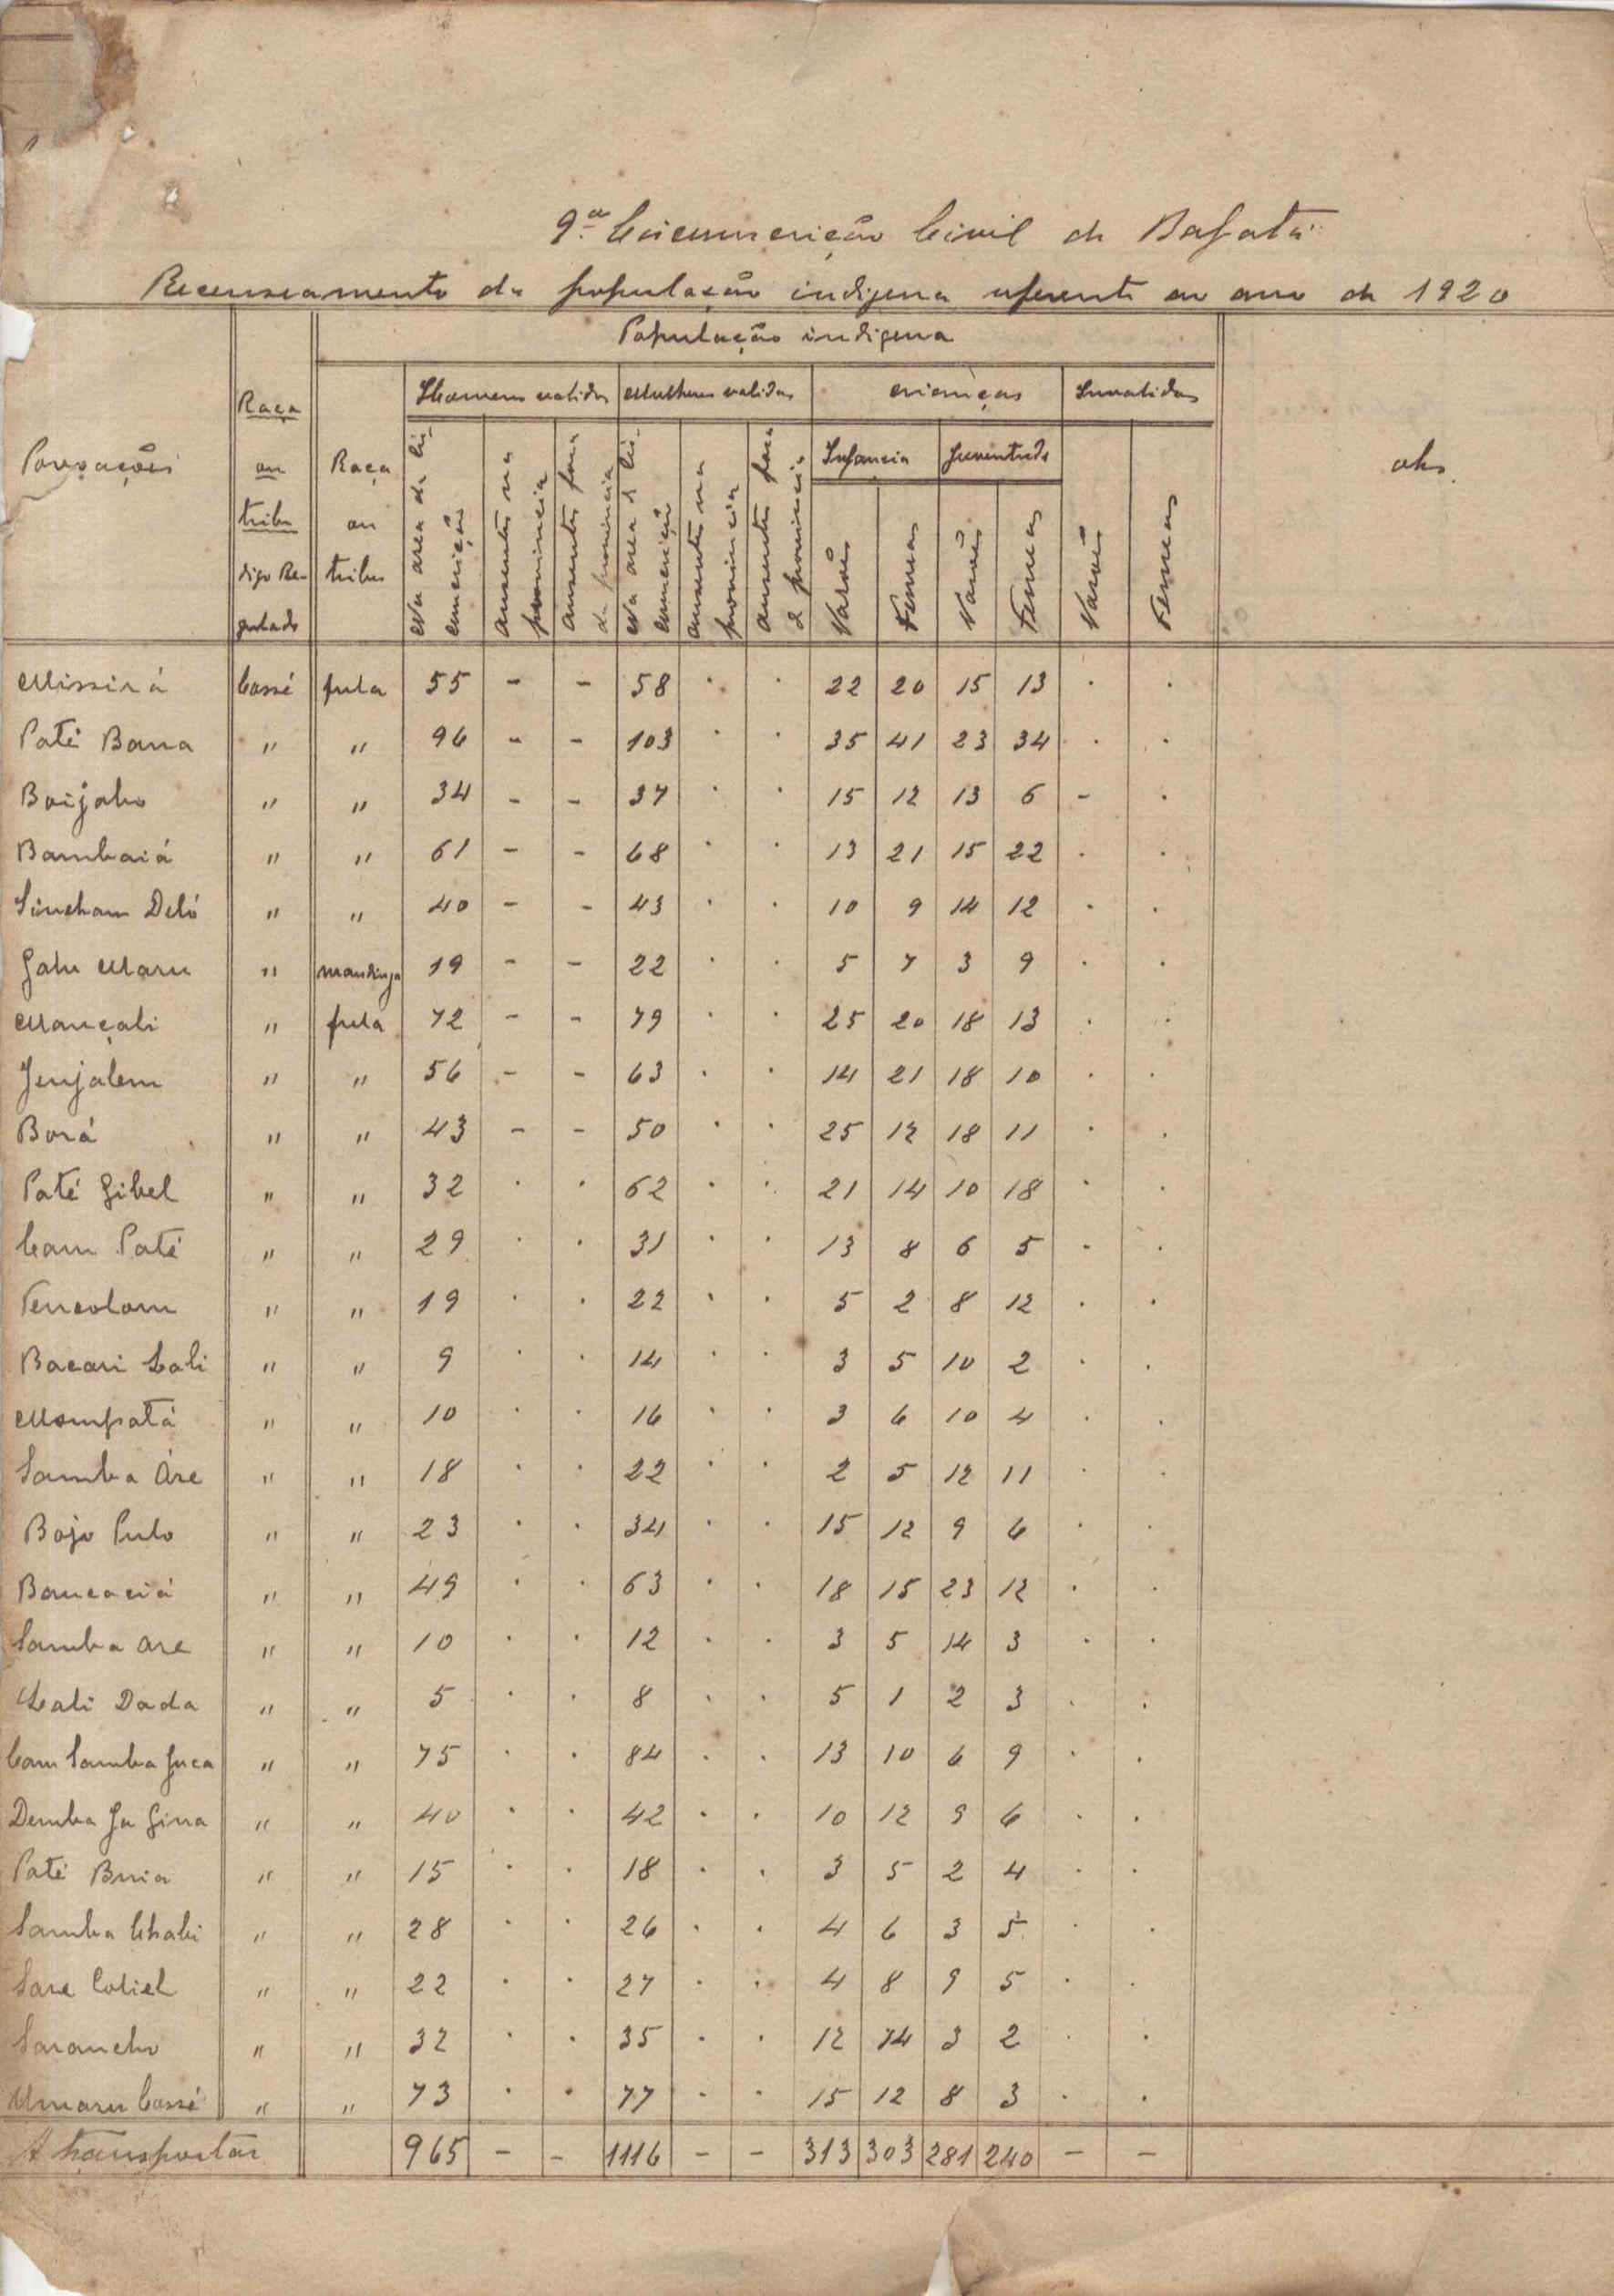 9.ª Circunscrição Civil de Bafatá
Recenseamento da população indigena referente ao ano de 1920
População indigena
Homens validos Mulheres validas crianças Invalidos
Povoações Raça ou tribu do Regulado Raça ou tribu Na area da circunscrição ausentes na provincia ausentes fora da provincia Na area da circunscrição ausentes na provincia ausentes fora da provincia Infancia Juventude Varões Femeas obs.
Varões Femeas Varões Femeas
Missirá Cossé fula 55 - - 58 . . 22 20 15 13 . .
Paté Bana " " 96 - - 103 . . 35 41 23 34 . .
Boijabo " " 34 - - 37 . . 15 12 13 6 - .
Bambaiá " " 61 - - 68 . . 13 21 15 22 . .
Sincham Deló " " 40 - - 43 . . 10 9 14 12 . .
Galu Maru " mandinga 19 - - 22 . . 5 7 3 9 . .
Mançali " fula 72 - - 79 . . 25 20 18 13 . .
Jenjalem " " 56 - - 63 . . 14 21 18 10 . .
Borá " " 43 - - 50 . . 25 12 18 11 . .
Paté Gibel " " 32 . . 62 . . 21 14 10 18 . .
Cam Paté " " 29 . . 31 . . 13 8 6 5 - .
Tencolam " " 19 . . 22 . . 5 2 8 12 . .
Bacari Lali " " 9 . . 14 . . 3 5 10 2 . .
Mampatá " " 10 . . 16 . . 3 6 10 4 . .
Samba Are " " 18 . . 22 . . 2 5 12 11 . .
Bojo Pulo " " 23 . . 34 . . 15 12 9 6 . .
Bancaciá " " 49 . . 63 . . 18 15 23 12 . .
Samba are " " 10 . . 12 . . 3 5 14 3 . .
Lali Dada " " 5 . . 8 . . 5 1 2 3 . .
Cam Samba Juca " " 75 . . 84 . . 13 10 6 9 . .
Demba Ja Gina " " 40 . . 42 . . 10 12 9 6 . .
Paté Buia " " 15 . . 18 . . 3 5 2 4 . .
Samba Chabi " " 28 . . 26 . . 4 6 3 5 . .
Sare Coliel " " 22 . . 27 . . 4 8 9 5 . .
Sarancho " " 32 . . 35 . . 12 14 3 2 . .
Umaru Cossé " " 73 . . 77 . . 15 12 8 3 . .
A transportar 965 - - 1116 - - 313 303 281 240 - -